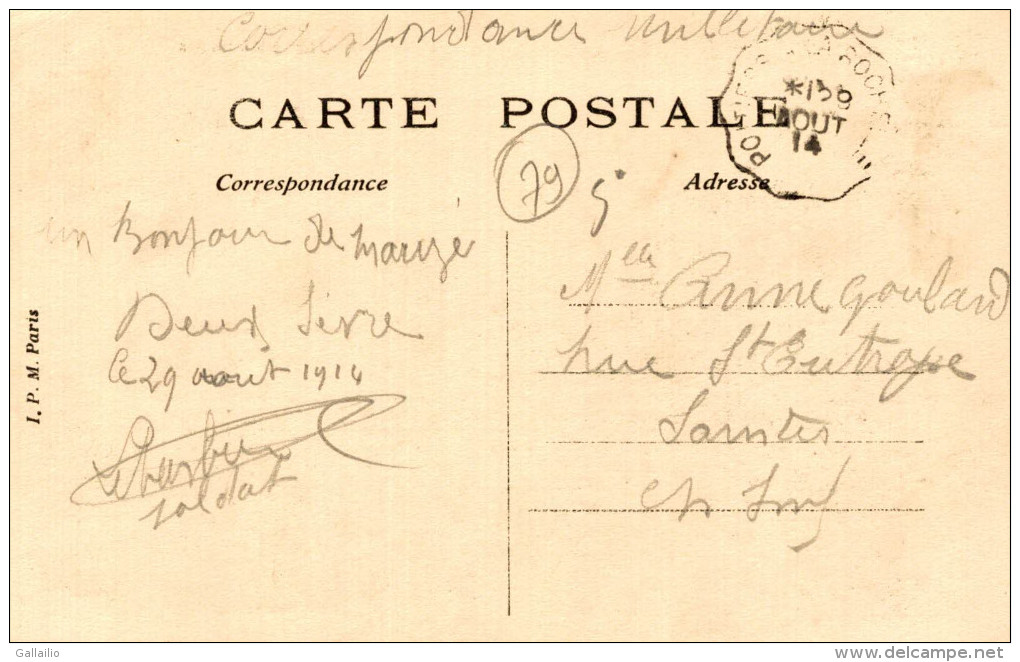 Correspondance militaire
CARTE POSTALE
POITIERS A LA ROCH
*13 8
AOUT
14
Correspondance
79
5°
Adresse
un Bonjour de Mauzé
Deux Sèvre
le 29 août 1914
soldat
Melle Anne Goulard
rue St Eutrope
Saintes
Ch Inf
I. P. M. Paris
Gallailio
www.delcampe.net